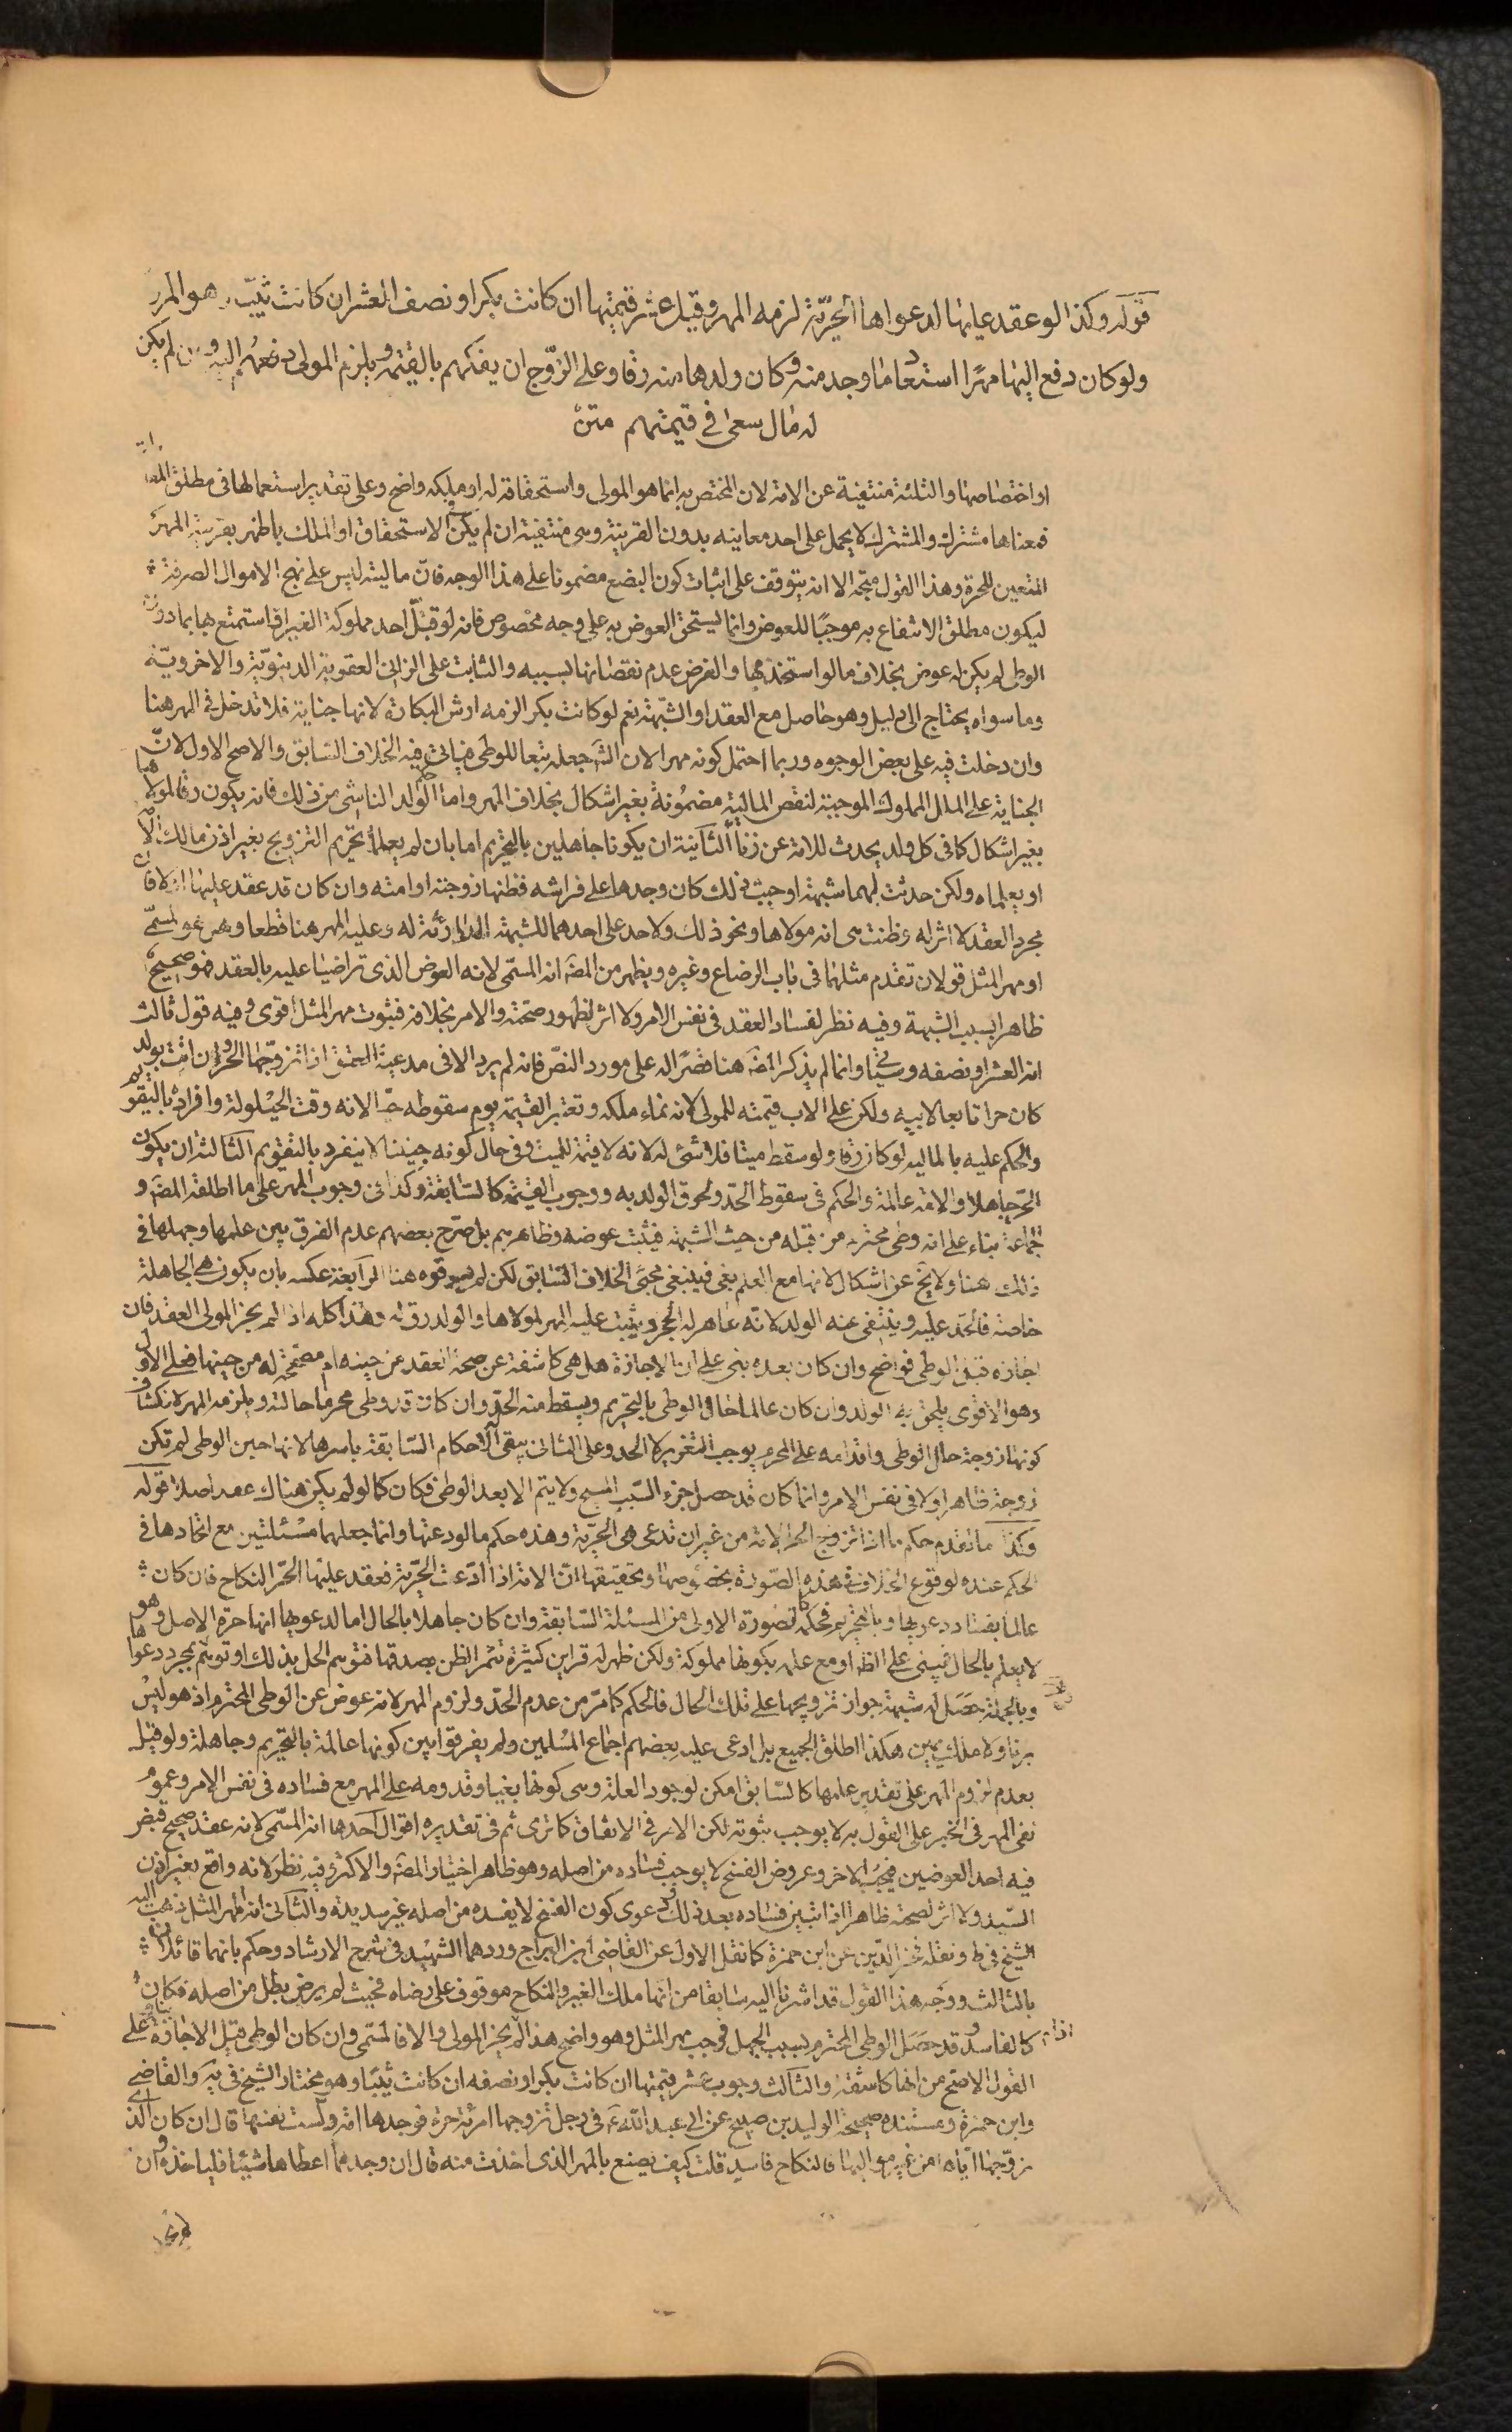 قوله وكذا لو عقد عليها لدعواها الحرّيّة لزمه المهر وقيل عشر قيمتها ان كانت بكرا او نصف العشر ان كانت ثيّبا وهو المروى
ولو كان دفع اليها مهرًا استعاد ما وجد منه وكان ولدها منه رقا وعلى الزوّج ان يفكهم بالقيمة ويلزم المولى دفعهم اليه ولو لم يكن
له مال سعى في قيمتهم متن
او اختصاصها والثلثة منتفية عن الامة لان المختص به انما هو المولى واستحقاقه له او ملكه واضح وعلى تقدير استعمالها فى مطلق
فمعناها مشترك والمشترك لا يحمل على احد معانيه بدون القرينة وهى منتفية ان لم يكن فى الاستحقاق او الملك باظهر بقرينة المهر
المتعين للحرة وهذا القول متجه الا انه يتوقف على اثبات كون البضع مضمونا على هذا الوجه فانّ ماليته ليس على نهج الاموال الصرفة
ليكون مطلق الانتفاع به موجبًا للعوض وانما يستحق العوض به على وجه مخصوص فانه لو قبّل احد مملوكة الغير او استمتع بها بما دون
الوطى لم يكن له عوض بخلاف ما لو استخدمها والفرض عدم نقصانها بسببه والثابت على الزانى العقوبة الدينويّة والاخرويّة
وما سواه يحتاج الى دليل وهو حاصل مع العقد او الشبّهة نعم لو كانت بكرا لزمه ارش البكارة لانها جناية فلا تدخل فى المهر هنا
وان دخلت فيه على بعض الوجوه وربما احتمل كونه مهرا لان الشّ جعله تبعا للوطى فياتى فيه الخلاف السّابق والاصح الاول لانّ
الجناية على المال المملوك الموجبة لنقص المالية مضمُونة بغير اشكال بخلاف المهر واما حكم الولد الناشى من ذلك فانه يكون رقا لمولاها
بغير اشكال كما فى كل ولد يحدث للامة عن زنا الثانية ان يكونا جاهلين بالتحريم اما بان لم يعلما تحريم التزويج بغير اذن مالك الامة
او يعلماه ولكن حدثت لهما شبهة اوجبت ذلك كان وجدها على فراشه فظنها زوجته او امته وان كان قد عقد عليها اولا فان
مجرد العقد لا اثر له وظنت هى انه مولاها ونحو ذلك ولا حد على احدهما للشبهة الدارئة له وعليه المهر هنا قطعا وهل هو المسمّى
او مهر المثل قولان تقدم مثلهما فى باب الرضاع وغيره ويظهر من المصَ انه المسمّى لانه العوض الذى تراضيا عليه بالعقد فهو صحيح
ظاهرا بسبب الشبهة وفيه نظر لفساد العقد فى نفس الامر ولا اثر لظهور صحته والامر بخلافه فثبوت مهر المثل اقوى وفيه قول ثالث
انه العشر او نصفه وسيجئ وانما لم يذكر المصَ هنا قصرًا له على مورد النصّ فانه لم يرد الا فى مدعية العتق اذا تزوجها الحر وان اتت بولد
كان حرا تابعا لابيه ولكن على الاب قيمته للمولى لانه نماء ملكه وتعتبر القيمة يوم سقوطه حيّا لانه وقت الحيلولة وافراده بالتقويم
والحكم عليه بالمالية لو كان رقا ولو سقط ميتا فلا شئ له لانه لا قيمة للميت وفى حال كونه جنينا لا ينفرد بالتقويم الثالثة ان يكون
الحّر جاهلا والامة عالمة والحكم فى سقوط الحّد ولحوق الولد به ووجوب القيمة كالسّابقة وكذا فى وجوب المهر على ما اطلقه المصَ و
جماعة بناء على انه وطى محترم من قبله من حيث الشبهة فيثبت عوضه وظاهرهم بل صّرح بعضهم عدم الفرق بين علمها وجهلها فى
ذلك هنا ولا يخ عن اشكال لانها مع العلم بغى فينبغى مجئ الخلاف السّابق لكن لم ينقلوه هنا الرابعة عكسه بان يكون هى الجاهلة
خاصة فالحّد عليه وينتفى عنه الولد لانه عاهر له الحجر ويثبت عليه المهر لمولاها والولد رق له وهذا كله اذا لم يجز المولى العقد فان
اجازه قبل الوطى فواضح وان كان بعده بنى على ان الاجازة هل هى كاشفة عن صحة العقد من حينه ام مصححة له من حينها فعلى الاول
وهو الاقوى يلحق به الولد وان كان عالما حال الوطى بالتحريم ويسقط منه الحّد وان كان قد وطى محرما حالته ويلزمه المهر لانكشاف
كونها زوجة حال الوطى واقدامه على المحرم يوجب التعزير لا الحد وعلى الثانى يبقى الاحكام السّابقة باسرها لانها حين الوطى لم تكن
زوجة ظاهرا ولا فى نفس الامر وانما كان قد حصل جزء السّبب المبيح ولا يتم الا بعد الوطى فكان كما لو لم يكن هناك عقد اصلا قوله
وكذا ما تقدم حكم ما اذا تزوج الحر الامة من غير ان تدعى هى الحرّية وهذه حكم ما لو دعتها وانما جعلهما مسئلتين مع اتحادها فى
الحكم عنده لوقوع الخلاف فى هذه الصّورة بخصُوصها وتحقيقها انّ الامة اذا ادّعت الحّرية فعقد عليها الحّر النكاح فان كان
عالما بفساد دعويها وبالتحريم فحكمه كالصّورة الاولى من المسئلة السّابقة وان كان جاهلا بالحال اما لدعويها انها حرة الاصل وهو
لا يعلم بالحال فيبنى على الظاهر او مع علمه بكونها مملوكة ولكن ظهر له قراين كثيرة تثمر الظن بصدقها فتوهم الحل بذلك او توهم بمجرد دعواها
وبالجملة حَصَل له شبهة جواز تزويجها على تلك الحال فالحكم كما مّر من عدم الحّد ولزوم المهر لانه عوض عن الوطى المحترم اذ هو ليس
بزنا ولا ملك يمين هكذا اطلق الجميع بل ادعى عليه بعضهم اجماع المسلمين ولم يفرقوا بين كونها عالمة بالتحريم وجاهلة ولو قيل
بعدم لزوم المهر على تقدير علمها كالسّابق امكن لوجود العلة وهى كونها بغيا وقدومه على المهر مع فساده فى نفس الامر وعموم
نفى المهر فى الخبر على القول به لا يوجب ثبوته لكن الامر فى الاتفاق كما ترى ثم فى تقديره اقوال احدها انه المسّمى لانه عقد صحيح قبض
فيه احد العوضين فيجب الاخر وعروض الفسخ لا يوجب فساده من اصله وهو ظاهر اختيار المصَ والاكثر وفيه نظر لانه واقع بغير اذن
السّيد ولا اثر لصحته ظاهرا اذا تبين فساده بعد ذلك ودعوى كون الفسخ لا يفسده من اصله غير سديدة والثانى انه مهر المثل ذهب اليه
الشيخ فى ط ونقله فخر الدّين عن ابن حمزة كما نقل الاول عن القاضى ابن البراج وردهما الشهيد فى شرح الارشاد وحكم بانهما قائلان
بالثالث ووجه هذا القول قد اشرنا اليه سابقا من انها ملك الغير والنكاح موقوف على رضاه فحيث لم يرض بطل من اصله فكان
كالفاسد وقد حصَل الوطى المحترم بسبب الجهل فوجب مهر المثل وهو واضح هذا اذا لم يجز المولى والا فالمسّمى وان كان الوطى قبل الاجازة بناء على
القول الاصح من انها كاشفة والثالث وجوب عشر قيمتها ان كانت بكرا او نصفه ان كانت ثيّبا وهو مختار الشيخ فى يه والقاضى
وابن حمزة ومستنده صحيحة الوليد بن صبيح عن ابى عبد اللّه ع فى رجل تزوجها امرئة حرة فوجدها امة دلست نفسها قال ان كان الذى
زوّجها اياه من غير مواليها فالنكاح فاسد قلت كيف يصنع بالمهر الذى اخذت منه قال ان وجد مما اعطاها شيئا فلياخذه وان